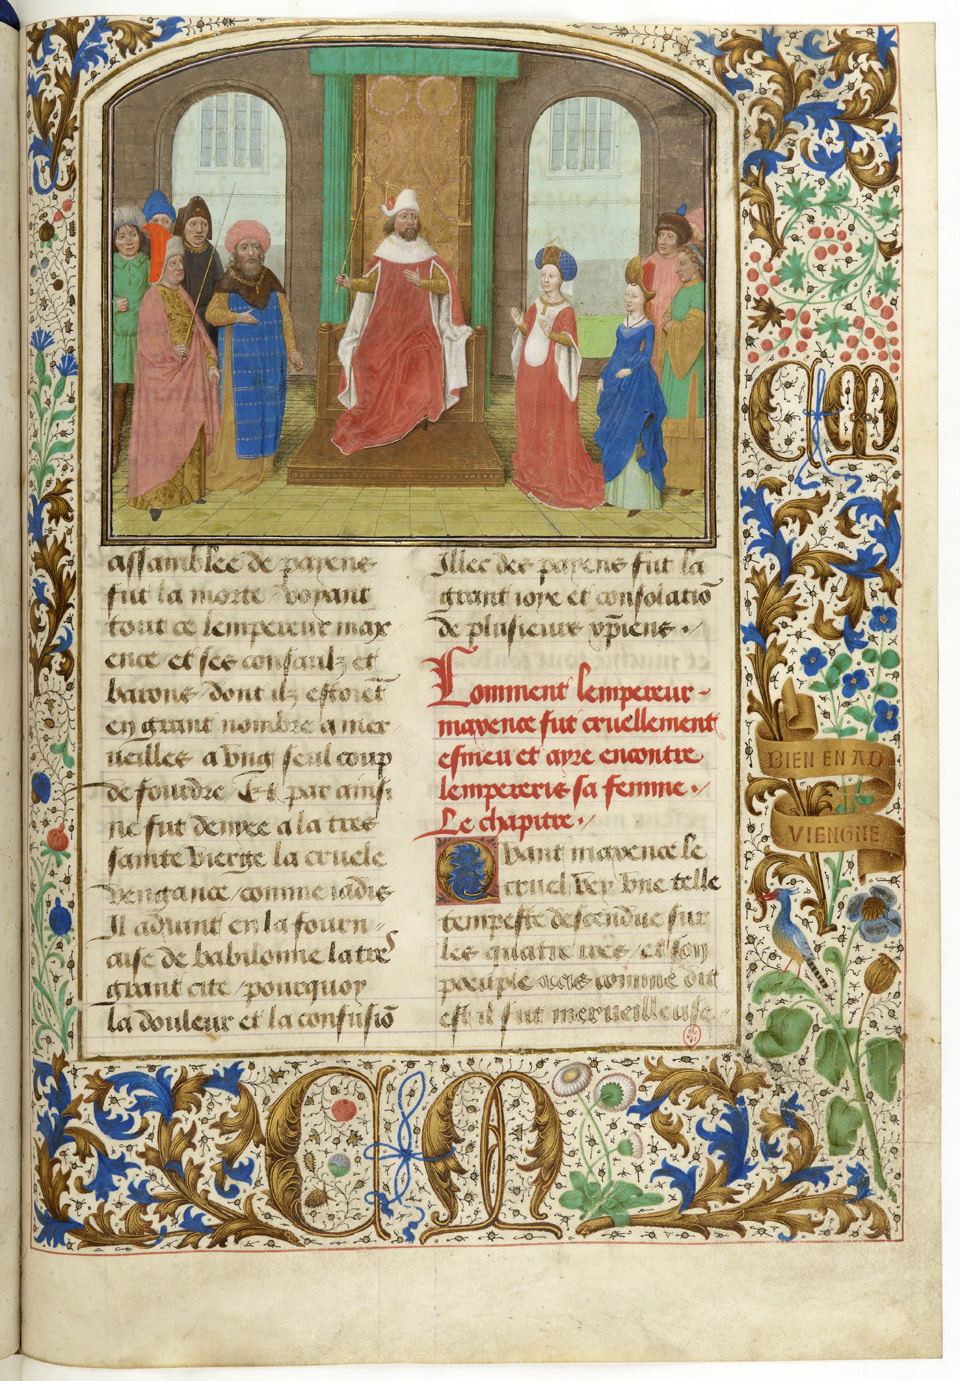 assamblee de payens
fut la morte / voyant
tout ce lempereur max
ence / et ses consaulz et
barons / dont ilz estoiēt
en grant nombre a mer-
ueilles a vng seul coup
de fouldre / Et par ainsi
ne fut denyee a la tres
sainte vierge la cruele
vengance / comme iadis
Il aduint en la fourn-
aise de babilonne la tres
grant cite / pourquoy
la douleur et la confusiō
Illec des payens fut la
grant ioye et consolatiō
de plusieurs xp̄iens ./
Comment lempereur -
maxence fut cruellement
esmeu et ayre encontre
lempereris sa femme ./
Le chapitre ./
Quant maxence le
cruel vey vne telle
tempeste descendue sur
les quatre roes / et son
poeuple occis comme dit
est il fut merueilleuse-
BIEN EN AD
VIENGNE